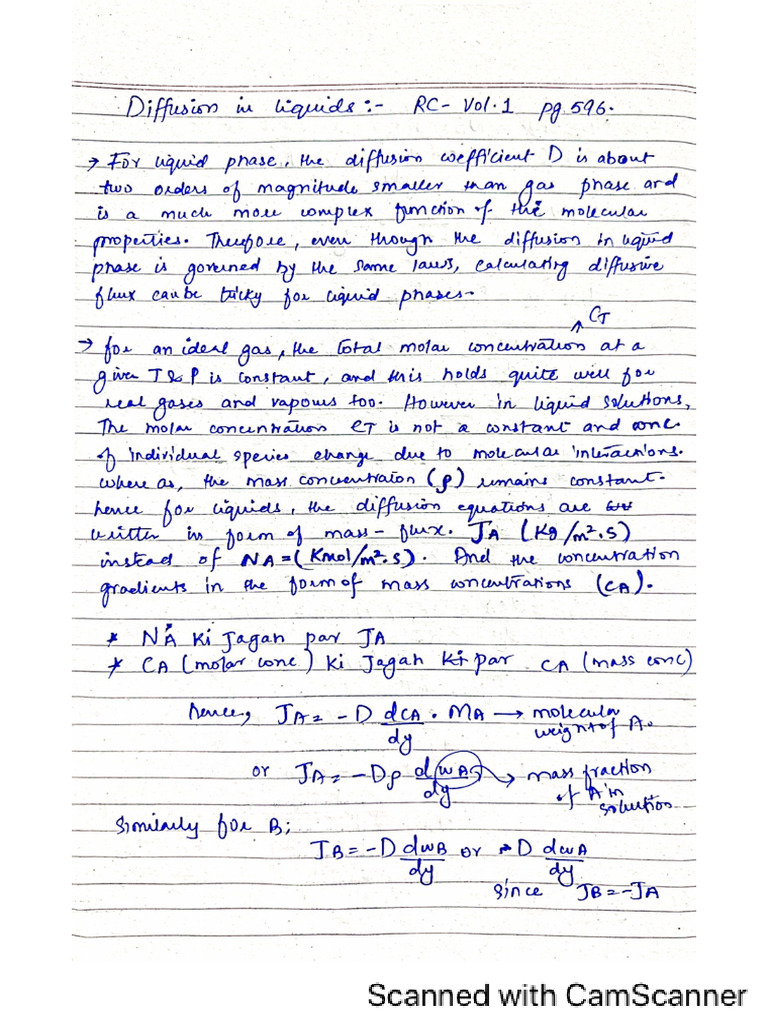 Diffusion in liquids:- RC- Vol.1 pg.596.
→ For liquid phase, the diffusion coefficient D is about
two orders of magnitude smaller than gas phase and
is a much more complex function of the molecular
properties. Therefore, even though the diffusion in liquid
phase is governed by the same laws, calculating diffusive
flux can be tricky for liquid phases.
↗ CT
→ for an ideal gas, the total molar concentration at a
given T & P is constant, and this holds quite well for
real gases and vapours too. However in liquid solutions,
The molar concentration CT is not a constant and conc.
of individual species change due to molecular interactions.
where as, the mass concentration (ρ) remains constant.
hence for liquids, the diffusion equations are
written in form of mass-flux. JA (Kg/m².s)
instead of NA=(Kmol/m².s). And the concentration
gradients in the form of mass concentrations (CA).
* NA Ki Jagah par JA
* CA (molar conc) Ki Jagah par CA (mass conc)
hence, JA = -D dCA/dy . MA → molecular weight of A.
or JA = -Dρ dwA/dy → mass fraction of A in solution
Similarly for B;
JB = -D dwB/dy or D dwA/dy
since JB = -JA
Scanned with CamScanner